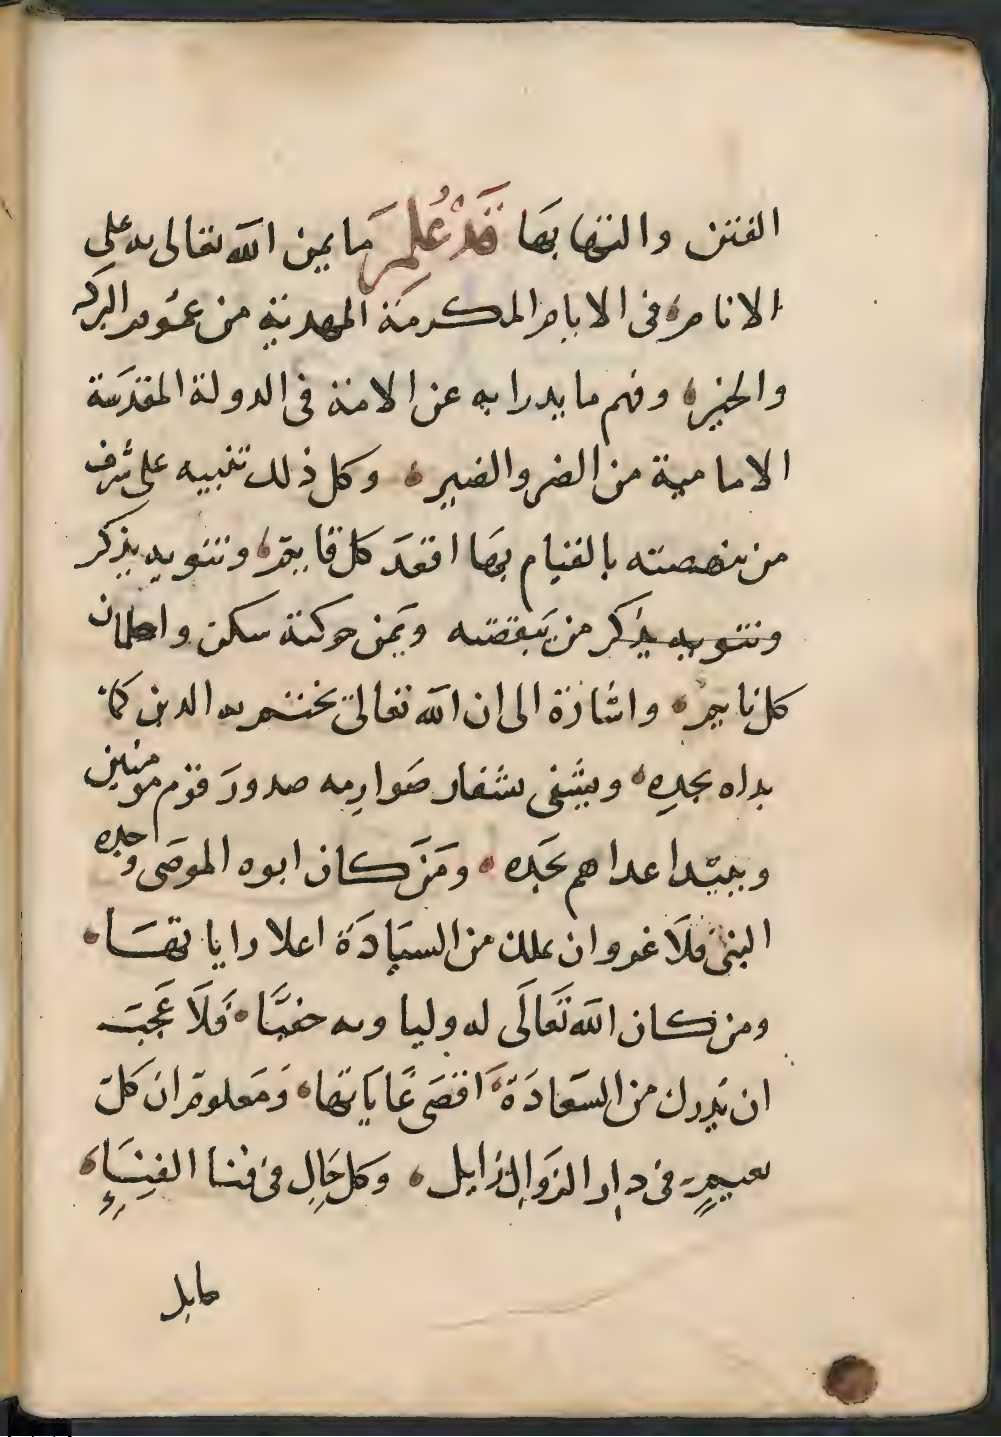 الفتن والتهابها قَدْ عُلِمَ ما يمن الله تعالى به على
الانام في الايام المكرمة المهدية من عموم البركة
والخير وفهم ما يدرا به عن الامة في الدولة المقدسة
الامامية من الضر والضير وكل ذلك تنبيه على شرف
من نهضته بالقيام بها اقعد كل قايم وتنويه بذكر
وتنويه بذكر من يقضته ويمن حركته سكن واطمان
كل نايم واشارة الى ان الله تعالى يختم به الدين كما
بداه بجده ويشفى بشفار صوارمه صدور قوم مومنين
ويبيد اعداهم بحده ومن كان ابوه الوصى وجده
النبى فلا غرو ان يملك من السيادة اعلا راياتها
ومن كان الله تَعَالَى له وليا وبه حفيًّا فَلَا عَجَبَ
ان يدرك من السعادة اقصى غاياتها ومعلوم ان كل
نعيمٍ في دار الزوال زايل وكل حَالِ في فنا الفنَاءِ
مايل